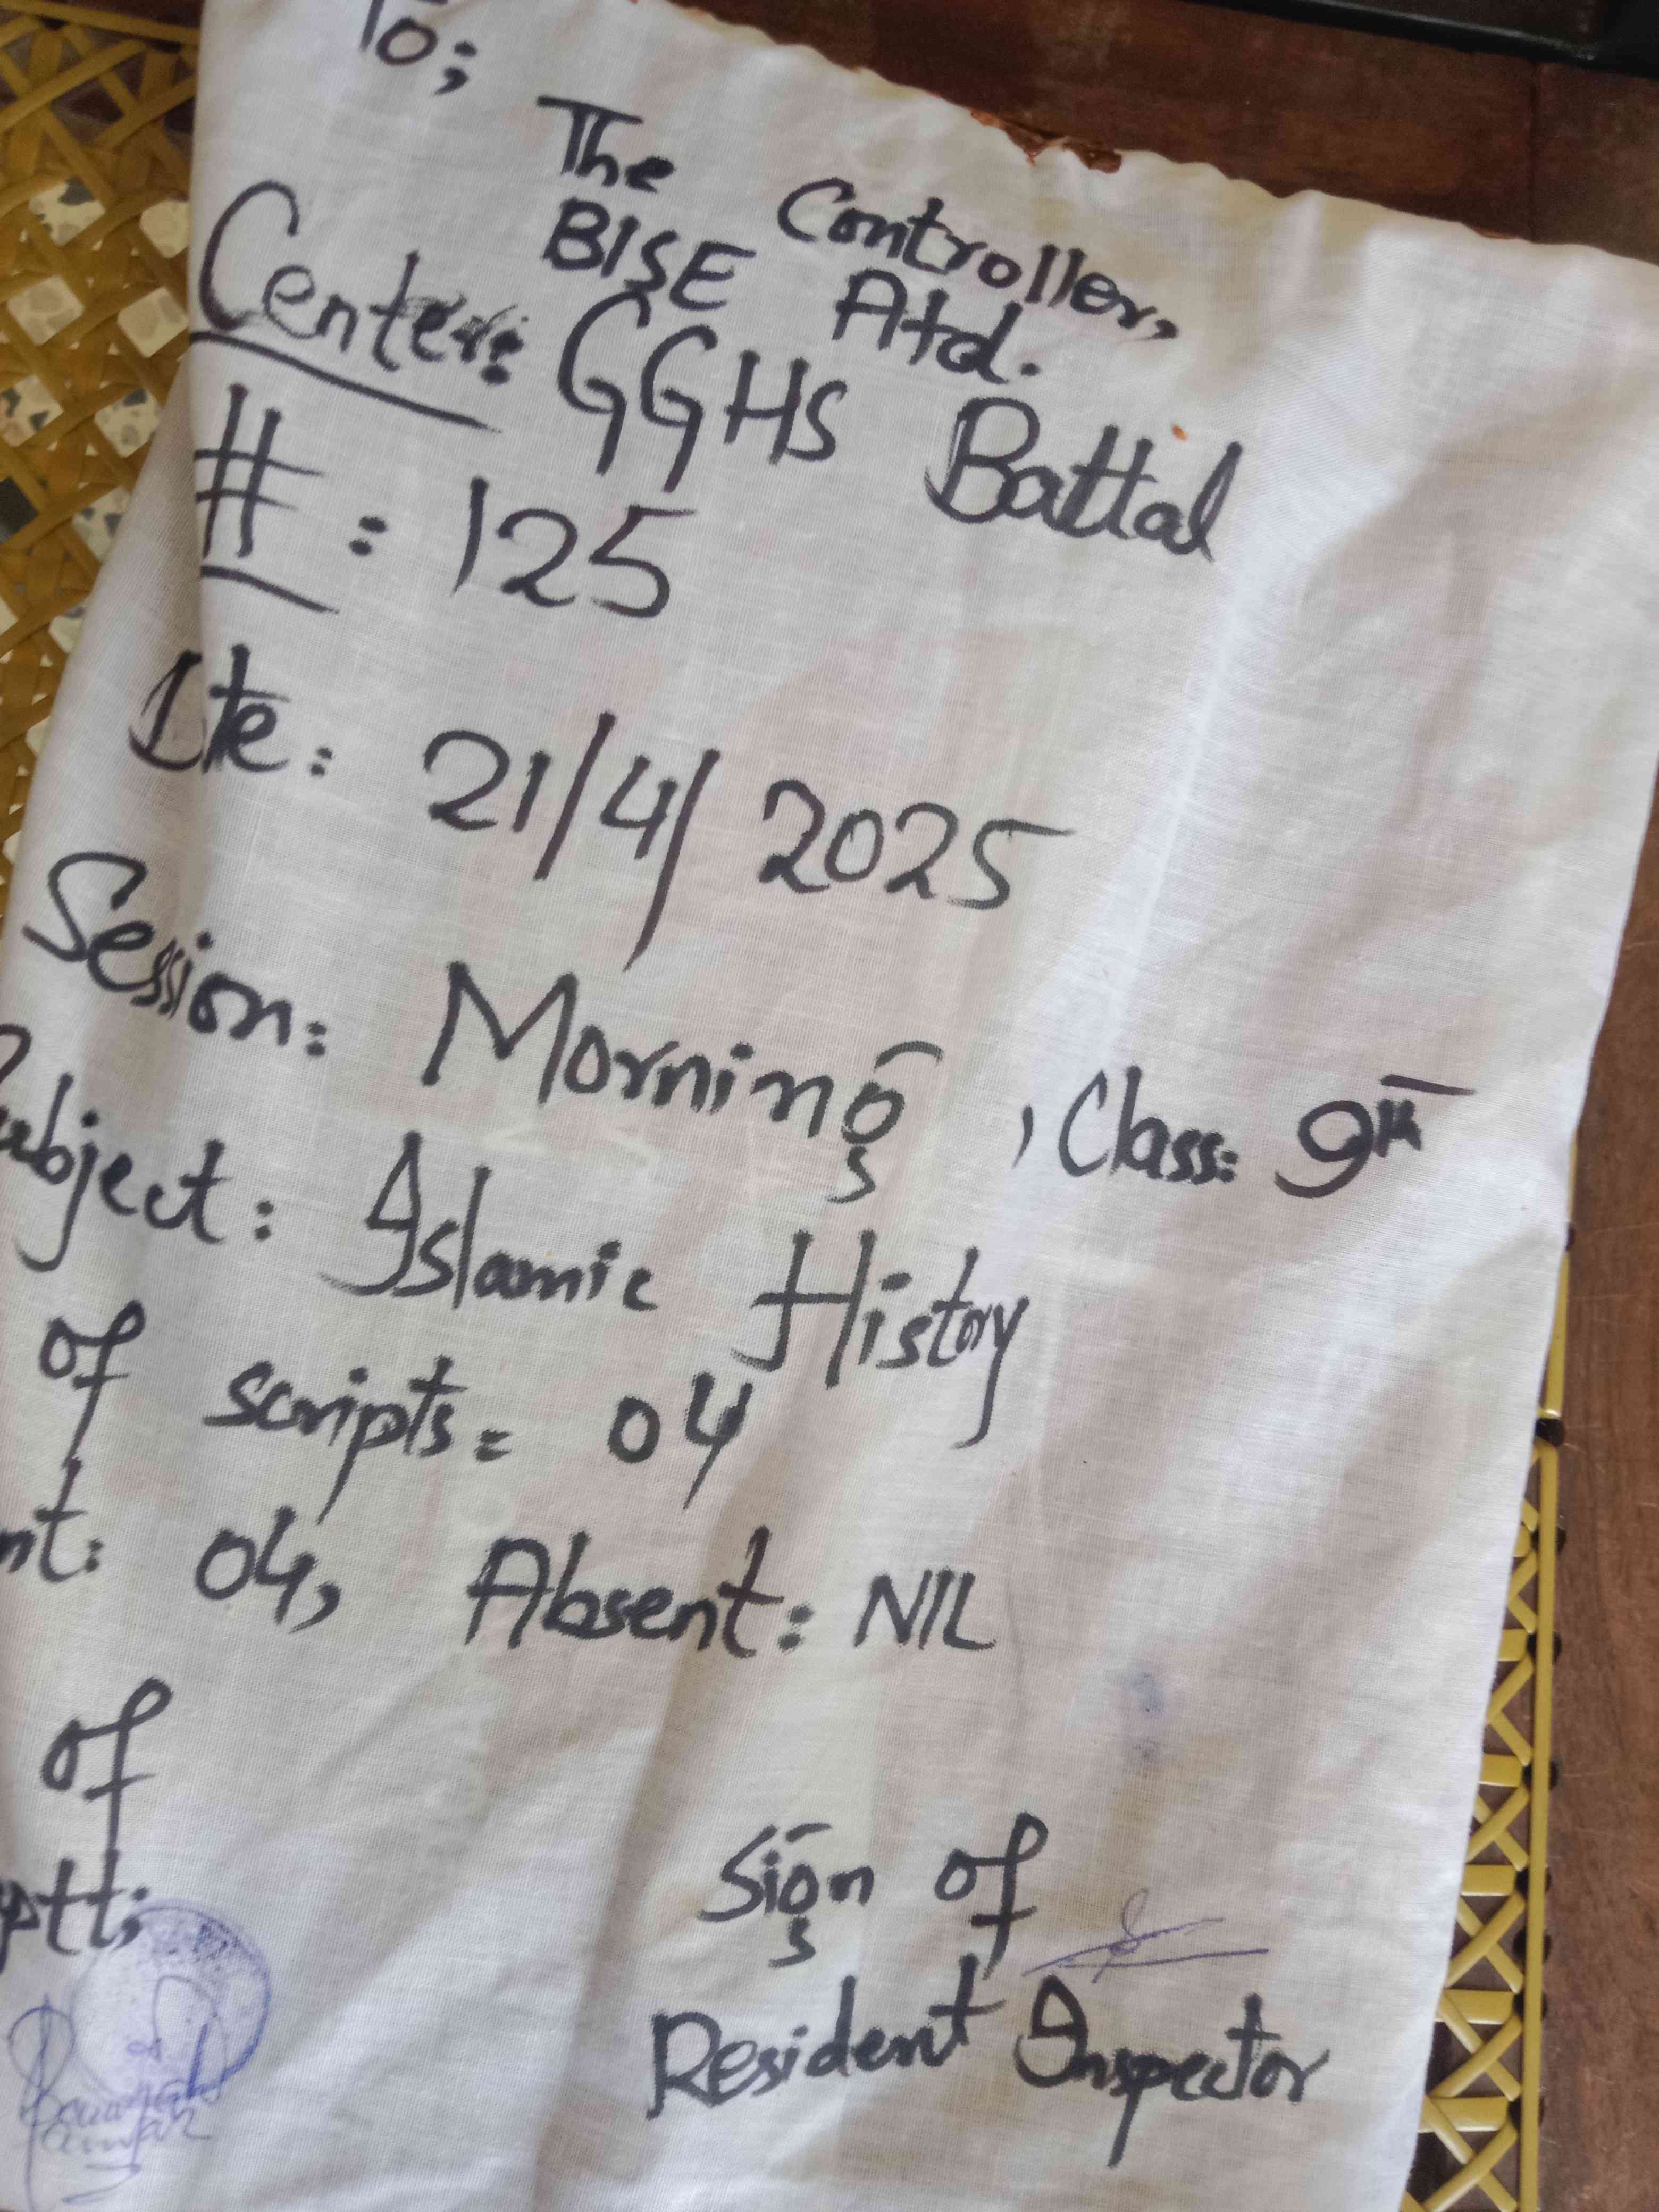 To;
The Controller,
BISE Atd.
Center: GGHS Battal
# : 125
Dte: 21/4/2025
Session: Morning, Class: 9th
Subject: Islamic History
of scripts = 04
nt: 04, Absent: NIL
of
ptt;
Sign of
Resident Inspector